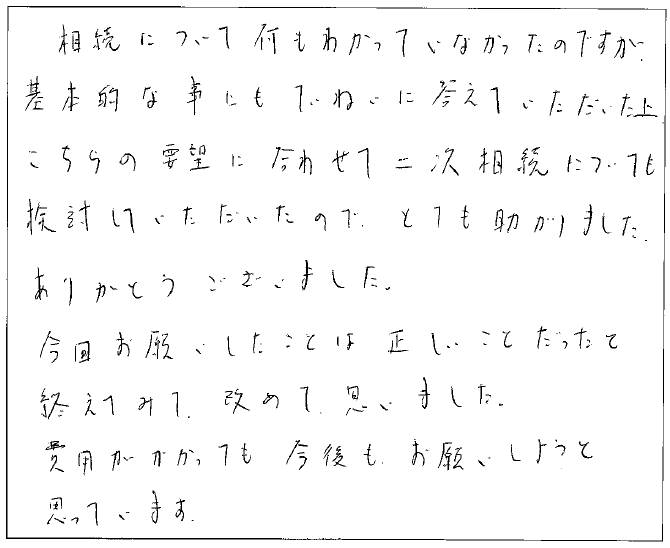 相続について何もわかっていなかったのですが、
基本的な事にもていねいに答えていただいた上
こちらの要望に合わせて二次相続についても
検討していただいたので、とても助かりました。
ありがとうございました。
今回お願いしたことは正しいことだったと
終えてみて、改めて、思いました。
費用がかかっても今後も、お願いしようと
思っています。